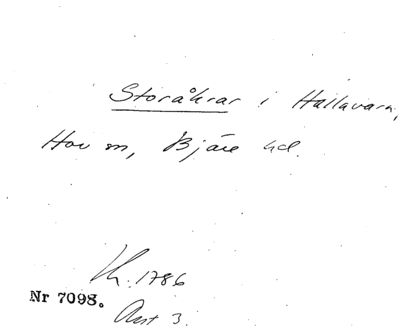 Storåkrar i Hallavara,
Hov sn, Bjäre hd.
Kr. 1786
Nr 7098.
Avst 3.